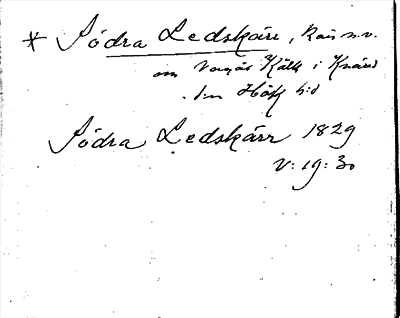 * Södra Ledskäre, kas n.v.
om Vagås Källe i Knäred
Hök hd
Södra Ledskärr 1829
V: 19: 30